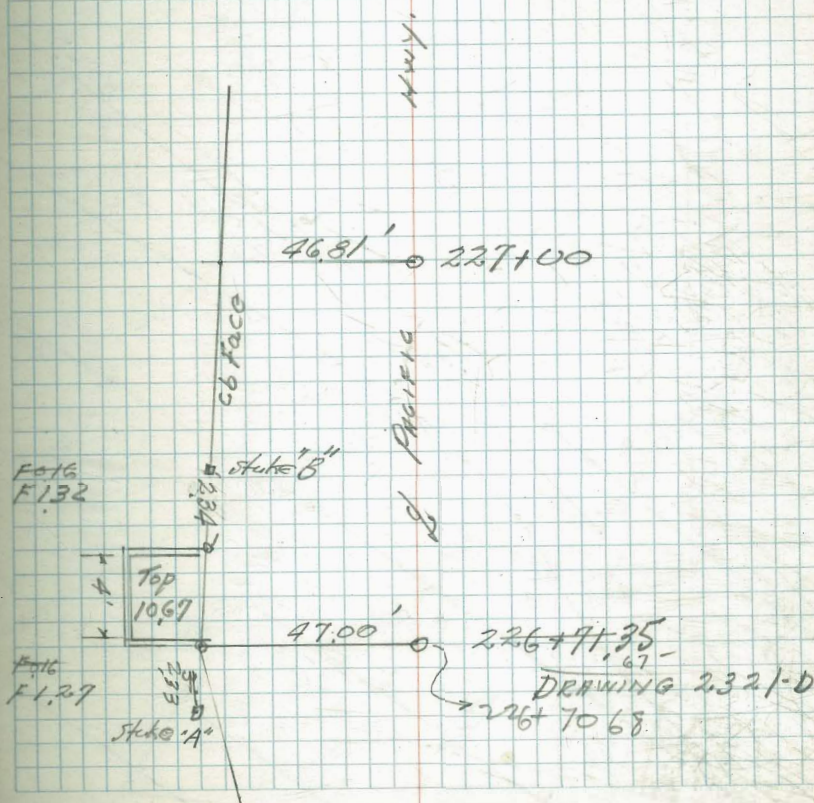 HWY.
46.81'
227+00
cb Face
PACIFIC
℄
stake "B"
F 0.16
F 1.32
2.34
4'
Top
10.67
47.00'
226+71.35
.67
DRAWING 2321-D
226+70.68
F 0.16
F 1.27
2.33
stake "A"